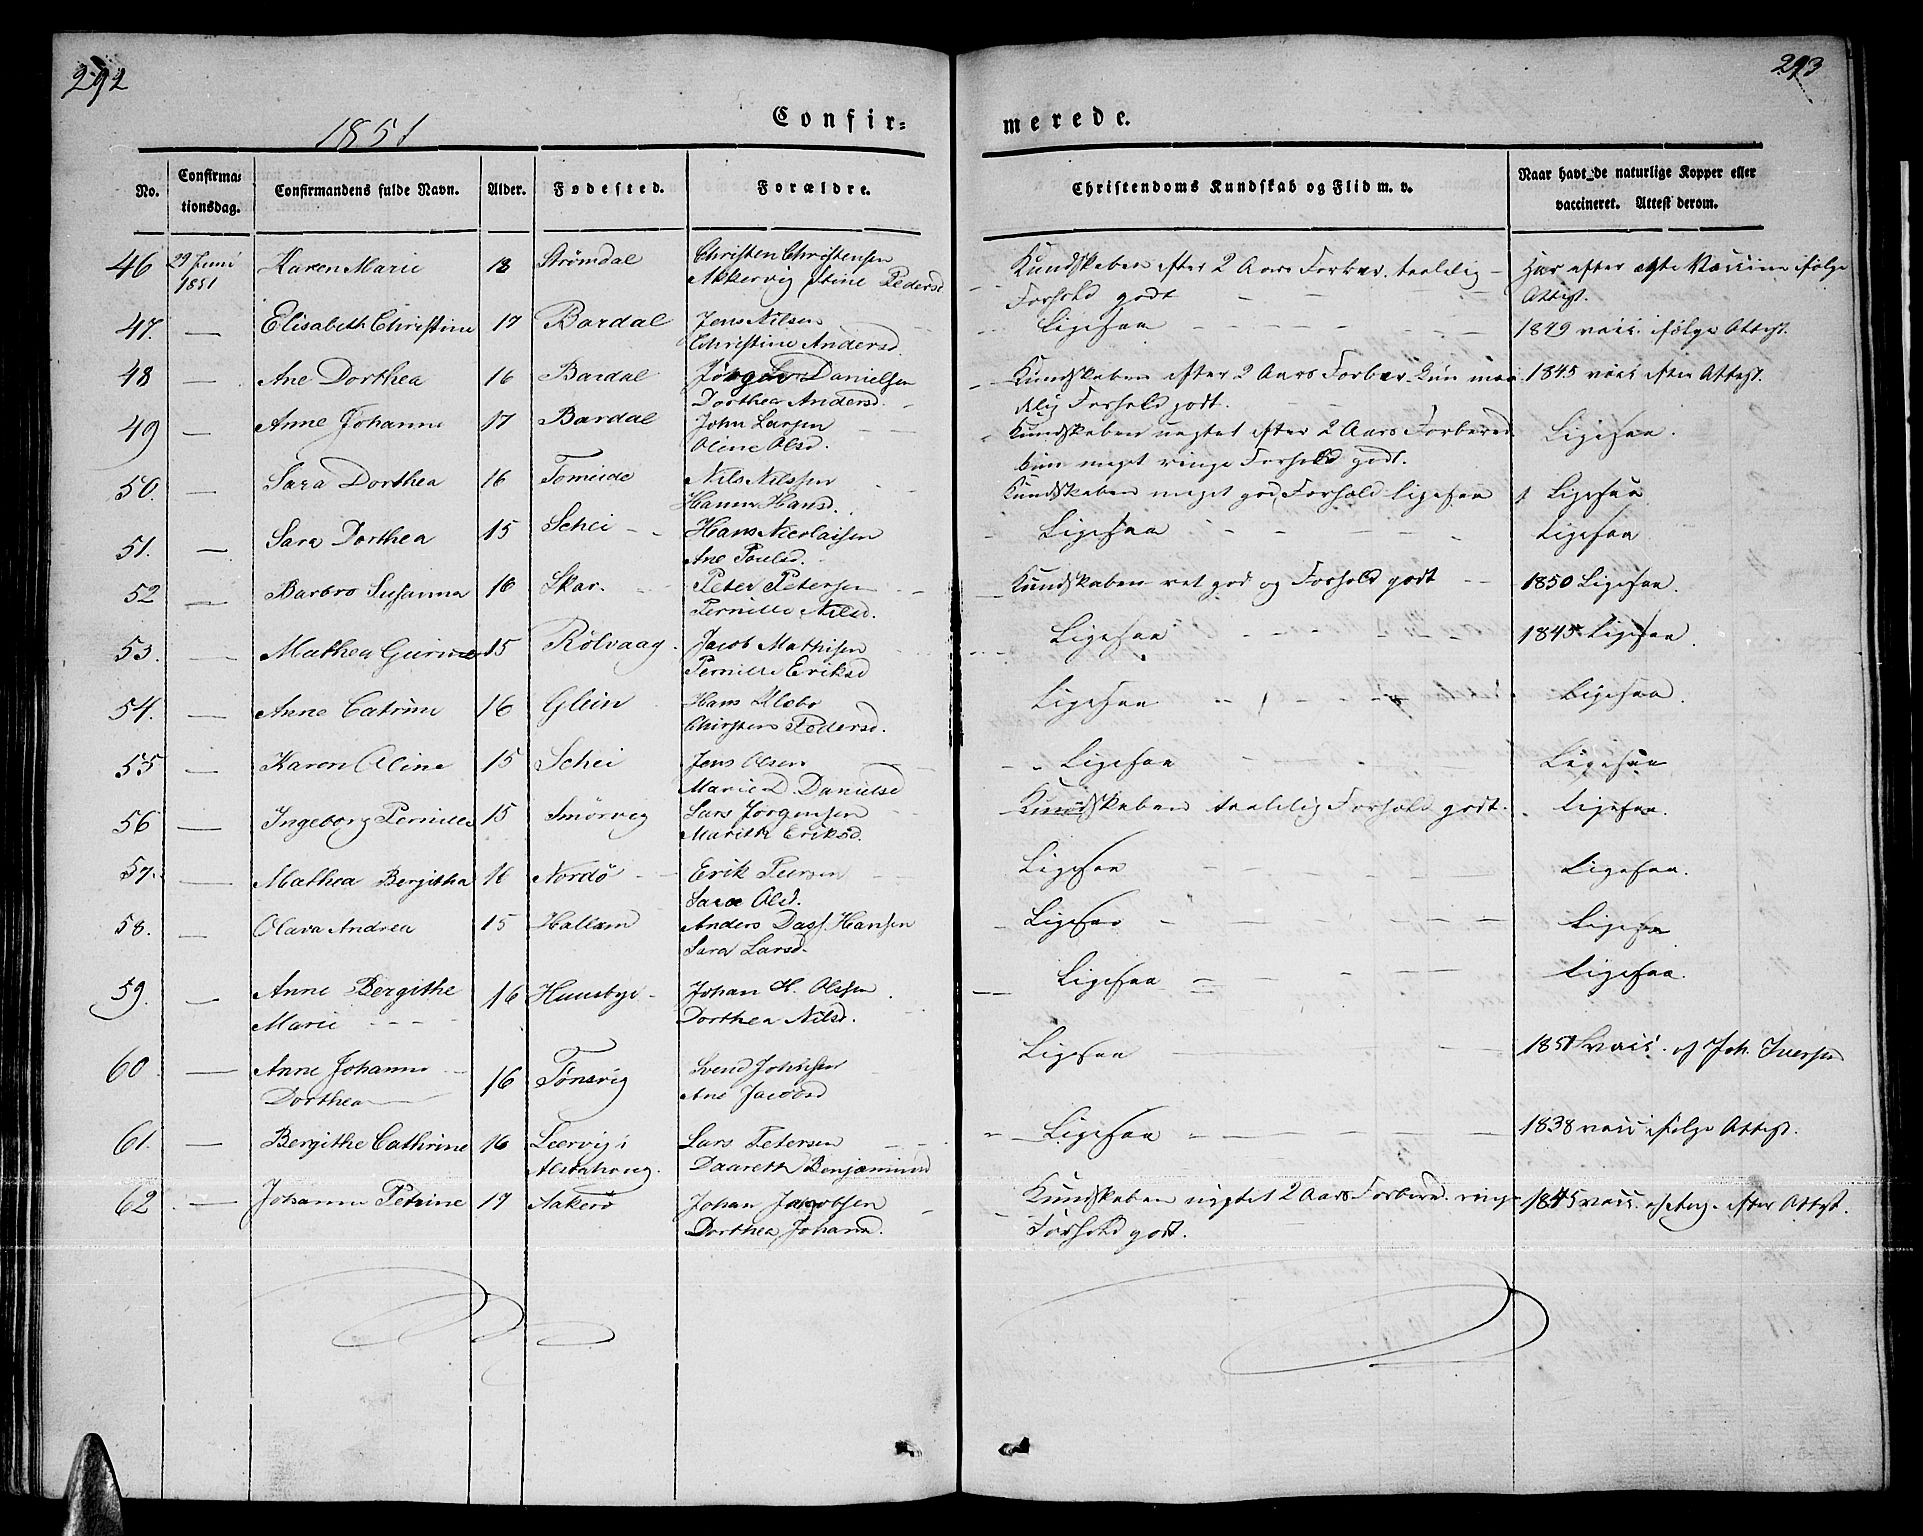 292
293
1851
Confir=
merede.
No.
Confirma-
tionsdag.
Confirmandens fulde Navn.
Alder.
Fødested.
Forældre.
Christendoms Kundskab og Flid m. v.
Naar havt de naturlige Kopper eller
vaccineret. Attest derom.
46 29 Juni 1851 Karen Marie 18 Strømdal Christen Christensen
Akkervig Stine Pedersd
Kundskaben efter 2 Aars Forber. taalelig
Forhold godt
Har efter ægte Vaccine ifølge
Attest.
47. — Elisabeth Christine 17 Bardal Jens Nilsen
Christine Andersd.
Ligesaa
1849 vacc. ifølge Attest.
48 — Ane Dorthea 16 Bardal Jørgen Danielsen
Dorthea Andersd.
Kundskaben efter 2 Aars Forber. kun maa
delig Forhold godt.
1845 vacc efter Attest.
49 — Anne Johanne 17 Bardal John Larsen
Oline Olsd.
Kundskaben uagtet efter 2 Aars Forbered.
kun meget ringe Forhold godt.
Ligesaa.
50. — Sara Dorthea 16 Tomeide Nils Nilssen
Hanna Hansd.
Kundskaben meget god Forhold ligesaa
Ligesaa
51. — Sara Dorthea 15 Schei Hans Nicolaisen
Ane Poulsd.
Ligesaa
Ligesaa
52 — Barbro Susanna 16 Skar. Peter Petersen
Pernille Nilsd.
Kundskaben ret god og Forhold godt
1850 Ligesaa.
53. — Mathea Gurine 15 Rølvaag. Jacob Mathisen
Pernille Eriksd
Ligesaa
1845 Ligesaa.
54. — Anne Catrine 16 Glein Hans Klæbo
Chirsten Pedersd.
Ligesaa
Ligesaa.
55 — Karen Oline 15 Schei Jens Olsen
Marie D. Danielsd
Ligesaa
Ligesaa
56 — Ingeborg Pernille 15 Smørvig Lars Jørgensen
Marith Eriksd.
Kundskaben taalelig Forhold godt.
Ligesaa.
57. — Mathea Bergitha 16 Nordø Erik
Sara Olsd.
Ligesaa
Ligesaa.
58. — Olava Andrea 15 Anders Dass Hansen
Sara Larsd.
Ligesaa
Ligesaa
59. — Anne Bergithe
Marie 16 Huusbye Johan H. Olssen
Dorthea Nilsd.
Ligesaa
Ligesaa.
60 — Anne Johanne
Dorthea 16 Tønsvig Svend Johnsen
Ane Jacobsd
Ligesaa
1851 vacc. af Joh. Iversen
61. — Bergithe Cathrine 16 Leervig i
Alstahoug. Lars Petersen
Daareth Benjaminsd
Ligesaa
1838 vacc ifølge Attest.
62. — Johanna Petrine 17 Aakerø Johan Jacobsen
Dorthea Johansd.
Kundskaben uagtet 2 Aars Forbered. ringe
Forhold godt.
1845 vacc. efter Attest.